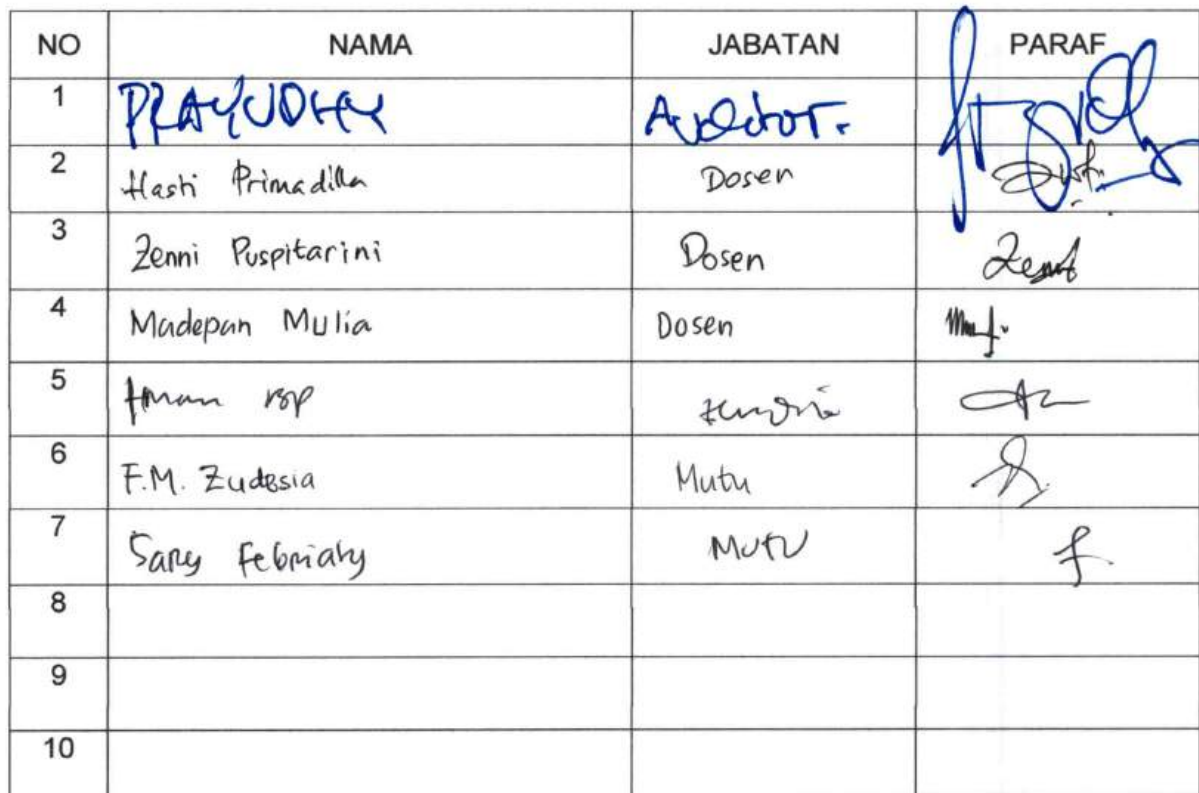 NO NAMA JABATAN PARAF
1 PRAYUDHY Auditor.
2 Hasti Primadilla Dosen
3 Zenni Puspitarini Dosen
4 Madepan Mulia Dosen
5
6 F.M. Zudesia Mutu
7 Sary Febriaty Mutu
8
9
10